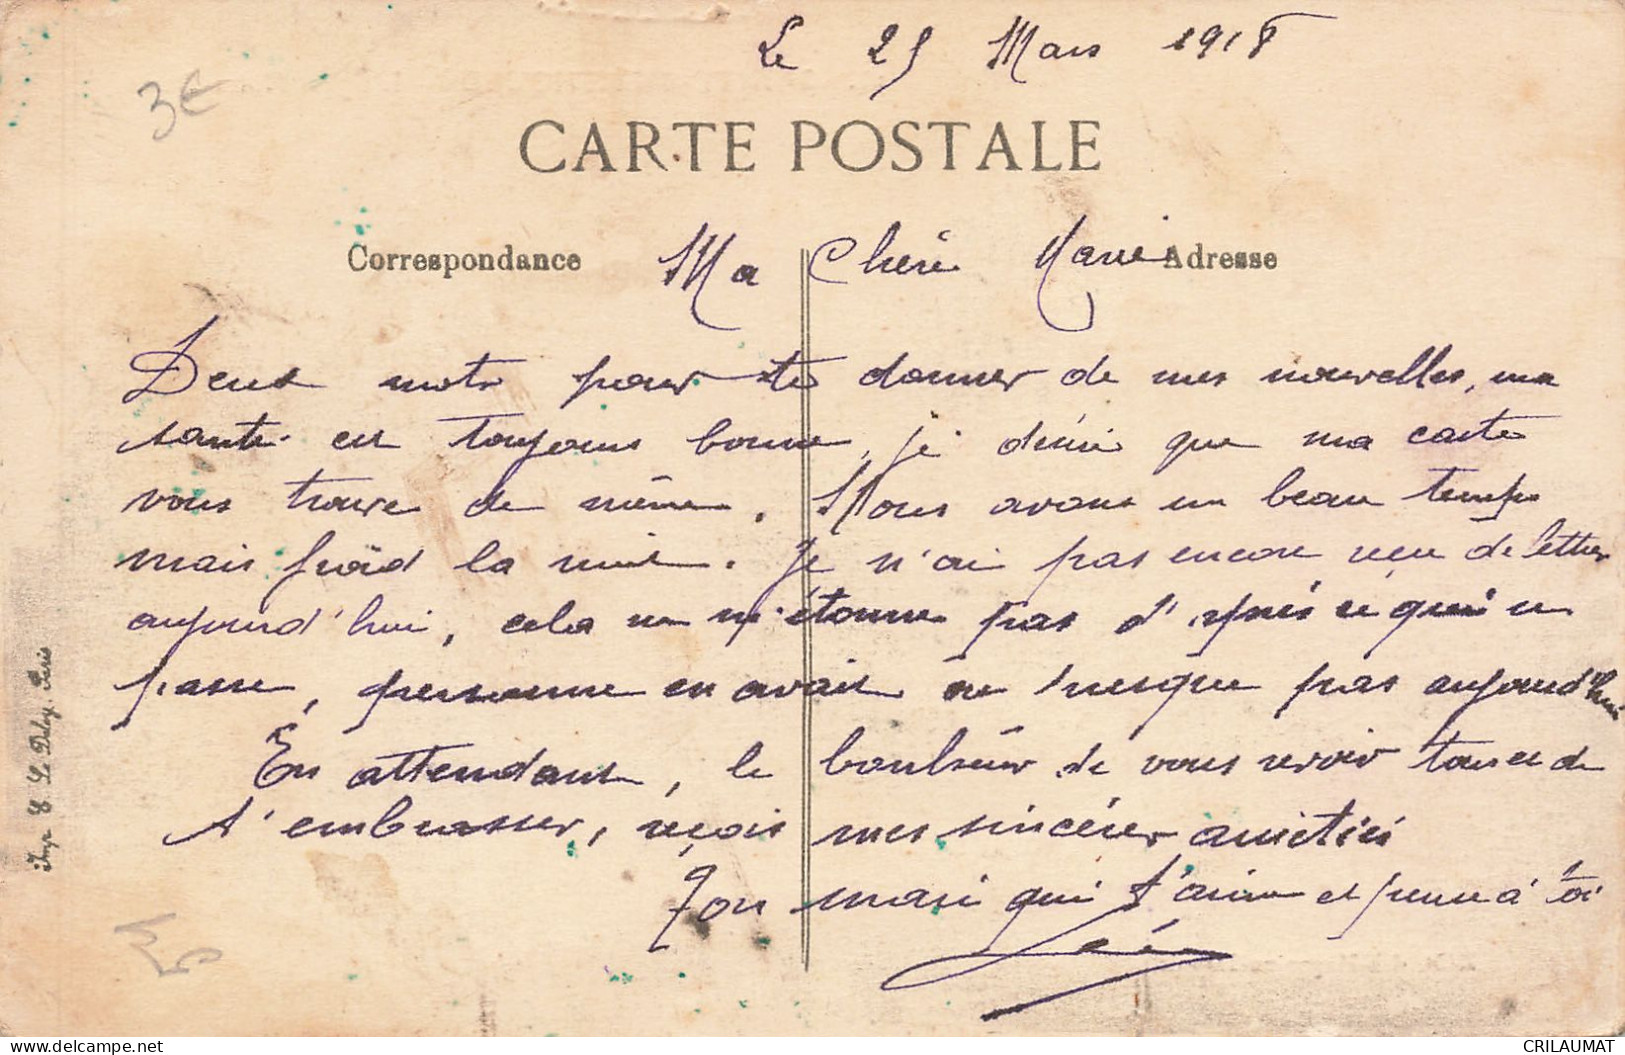 Le 25 Mars 1918
3€
CARTE POSTALE
Correspondance
Adresse
Ma Chère Marie
Deux mots pour te donner de mes nouvelles, ma
santé est toujours bonne, je désire que ma carte
vous trouve de même. Nous avons un beau temps
mais froid la nuit. Je n'ai pas encore reçu de lettres
aujourd'hui, cela ne m'étonne pas d'après ce qui se
passe, personne en avait ou presque pas aujourd'hui
En attendant, le bonheur de vous revoir tous et de
t'embrasser, reçois mes sincères amitiés
Ton mari qui t'aime et pense à toi
Imp. E. Le Deley, Paris
delcampe.net
CRILAUMAT